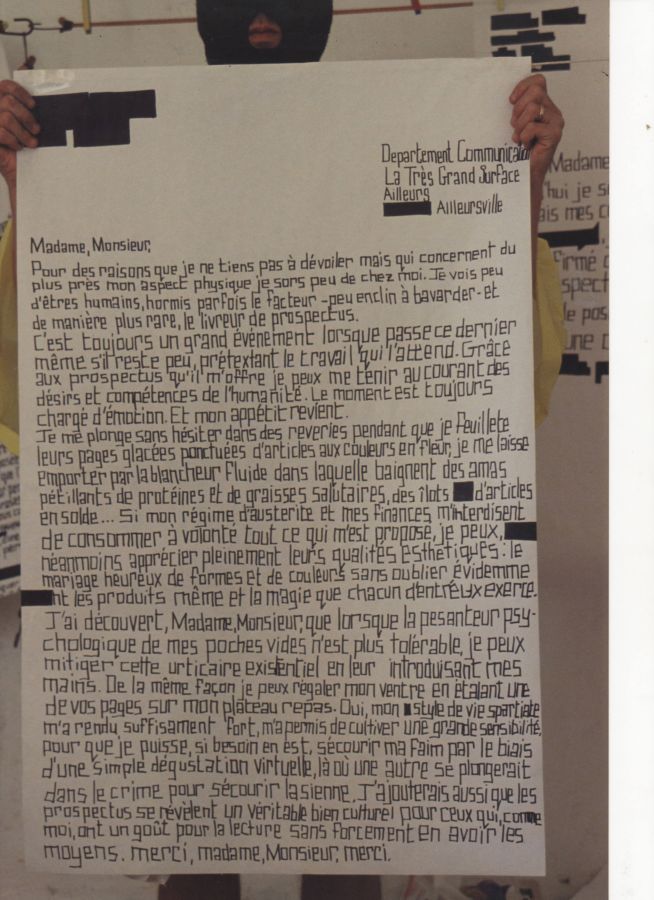 Departement Communication
La Très Grand Surface
Ailleurs
Ailleursville
Madame, Monsieur,
Pour des raisons que je ne tiens pas à dévoiler mais qui concernent du
plus près mon aspect physique je sors peu de chez moi. Je vois peu
d'êtres humains, hormis parfois le facteur -peu enclin à bavarder- et
de manière plus rare, le livreur de prospectus.
C'est toujours un grand événement lorsque passe ce dernier
même s'il reste peu, prétextant le travail qui l'attend. Grâce
aux prospectus qu'il m'offre je peux me tenir au courant des
désirs et compétences de l'humanité. Le moment est toujours
chargé d'émotion. Et mon appétit revient.
Je me plonge sans hésiter dans des reveries pendant que je feuillete
leurs pages glacées ponctuées d'articles aux couleurs en fleur, je me laisse
emporter par la blancheur fluide dans laquelle baignent des amas
pétillants de protéines et de graisses salutaires, des îlots d'articles
en solde... Si mon régime d'austerite et mes finances m'interdisent
de consommer à volonté tout ce qui m'est proposé, je peux,
néanmoins apprécier pleinement leurs qualités esthétiques : le
mariage heureux de formes et de couleurs sans oublier évidemme
nt les produits même et la magie que chacun d'entr'eux exerce.
J'ai découvert, Madame, Monsieur, que lorsque la pesanteur psy-
chologique de mes poches vides n'est plus tolérable, je peux
mitiger cette urticaire existentiel en leur introduisant mes
mains. De la même façon je peux régaler mon ventre en étalant une
de vos pages sur mon plateau repas. Oui, mon style de vie spartiate
m'a rendu suffisament fort, m'a permis de cultiver une grande sensibilité,
pour que je puisse, si besoin en est, sécourir ma faim par le biais
d'une simple dégustation virtuelle, là où une autre se plongerait
dans le crime pour sécourir la sienne. J'ajouterais aussi que les
prospectus se révèlent un véritable bien culturel pour ceux qui, comme
moi, ont un goût pour la lecture sans forcement en avoir les
moyens. merci, madame, Monsieur, merci.
Madame
hui je
ais mes
firmé
spect
le pos
une